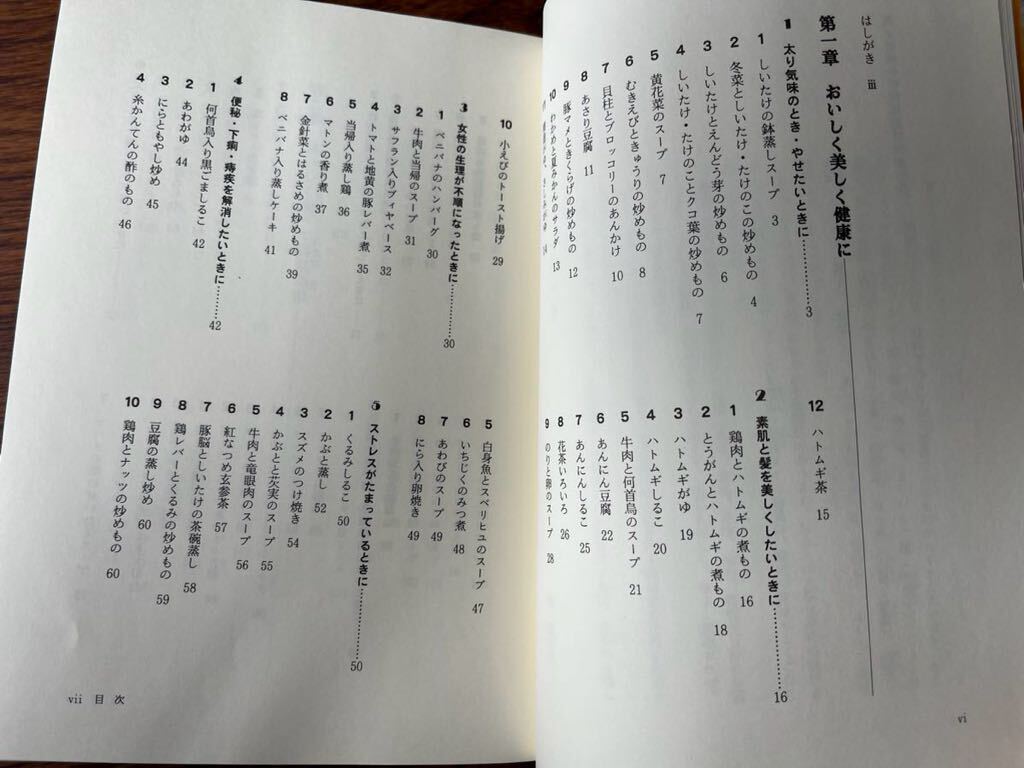 はしがき iii
第一章 おいしく美しく健康に
1 太り気味のとき・やせたいときに………3
1 しいたけの鉢蒸しスープ 3
2 冬菜としいたけ・たけのこの炒めもの 4
3 しいたけとえんどう芽の炒めもの 6
4 しいたけ・たけのことクコ葉の炒めもの 7
5 黄花菜のスープ 7
6 むきえびときゅうりの炒めもの 8
7 貝柱とブロッコリーのあんかけ 10
8 あさり豆腐 11
9 豚マメときくらげの炒めもの 12
10 わかめと夏みかんのサラダ 13
14
12 ハトムギ茶 15
2 素肌と髪を美しくしたいときに………16
1 鶏肉とハトムギの煮もの 16
2 とうがんとハトムギの煮もの 18
3 ハトムギがゆ 19
4 ハトムギしるこ 20
5 牛肉と何首烏のスープ 21
6 あんにん豆腐 22
7 あんにんしるこ 25
8 花茶いろいろ 26
9 のりと卵のスープ 28
vi
10 小えびのトースト揚げ 29
3 女性の生理が不順になったときに………30
1 ベニバナのハンバーグ 30
2 牛肉と当帰のスープ 31
3 サフラン入りブイヤベース 32
4 トマトと地黄の豚レバー煮 35
5 当帰入り蒸し鶏 36
6 マトンの香り煮 37
7 金針菜とはるさめの炒めもの 39
8 ベニバナ入り蒸しケーキ 41
4 便秘・下痢・痔疾を解消したいときに………42
1 何首烏入り黒ごましるこ 42
2 あわがゆ 44
3 にらともやし炒め 45
4 糸かんてんの酢のもの 46
5 白身魚とスベリヒユのスープ 47
6 いちじくのみつ煮 48
7 あわびのスープ 49
8 にら入り卵焼き 49
5 ストレスがたまっているときに………50
1 くるみしるこ 50
2 かぶと蒸し 52
3 スズメのつけ焼き 54
4 かぶとと芡実のスープ 55
5 牛肉と竜眼肉のスープ 56
6 紅なつめ玄参茶 57
7 豚脳としいたけの茶碗蒸し 58
8 鶏レバーとくるみの炒めもの 59
9 豆腐の蒸し炒め 60
10 鶏肉とナッツの炒めもの 60
vii 目 次